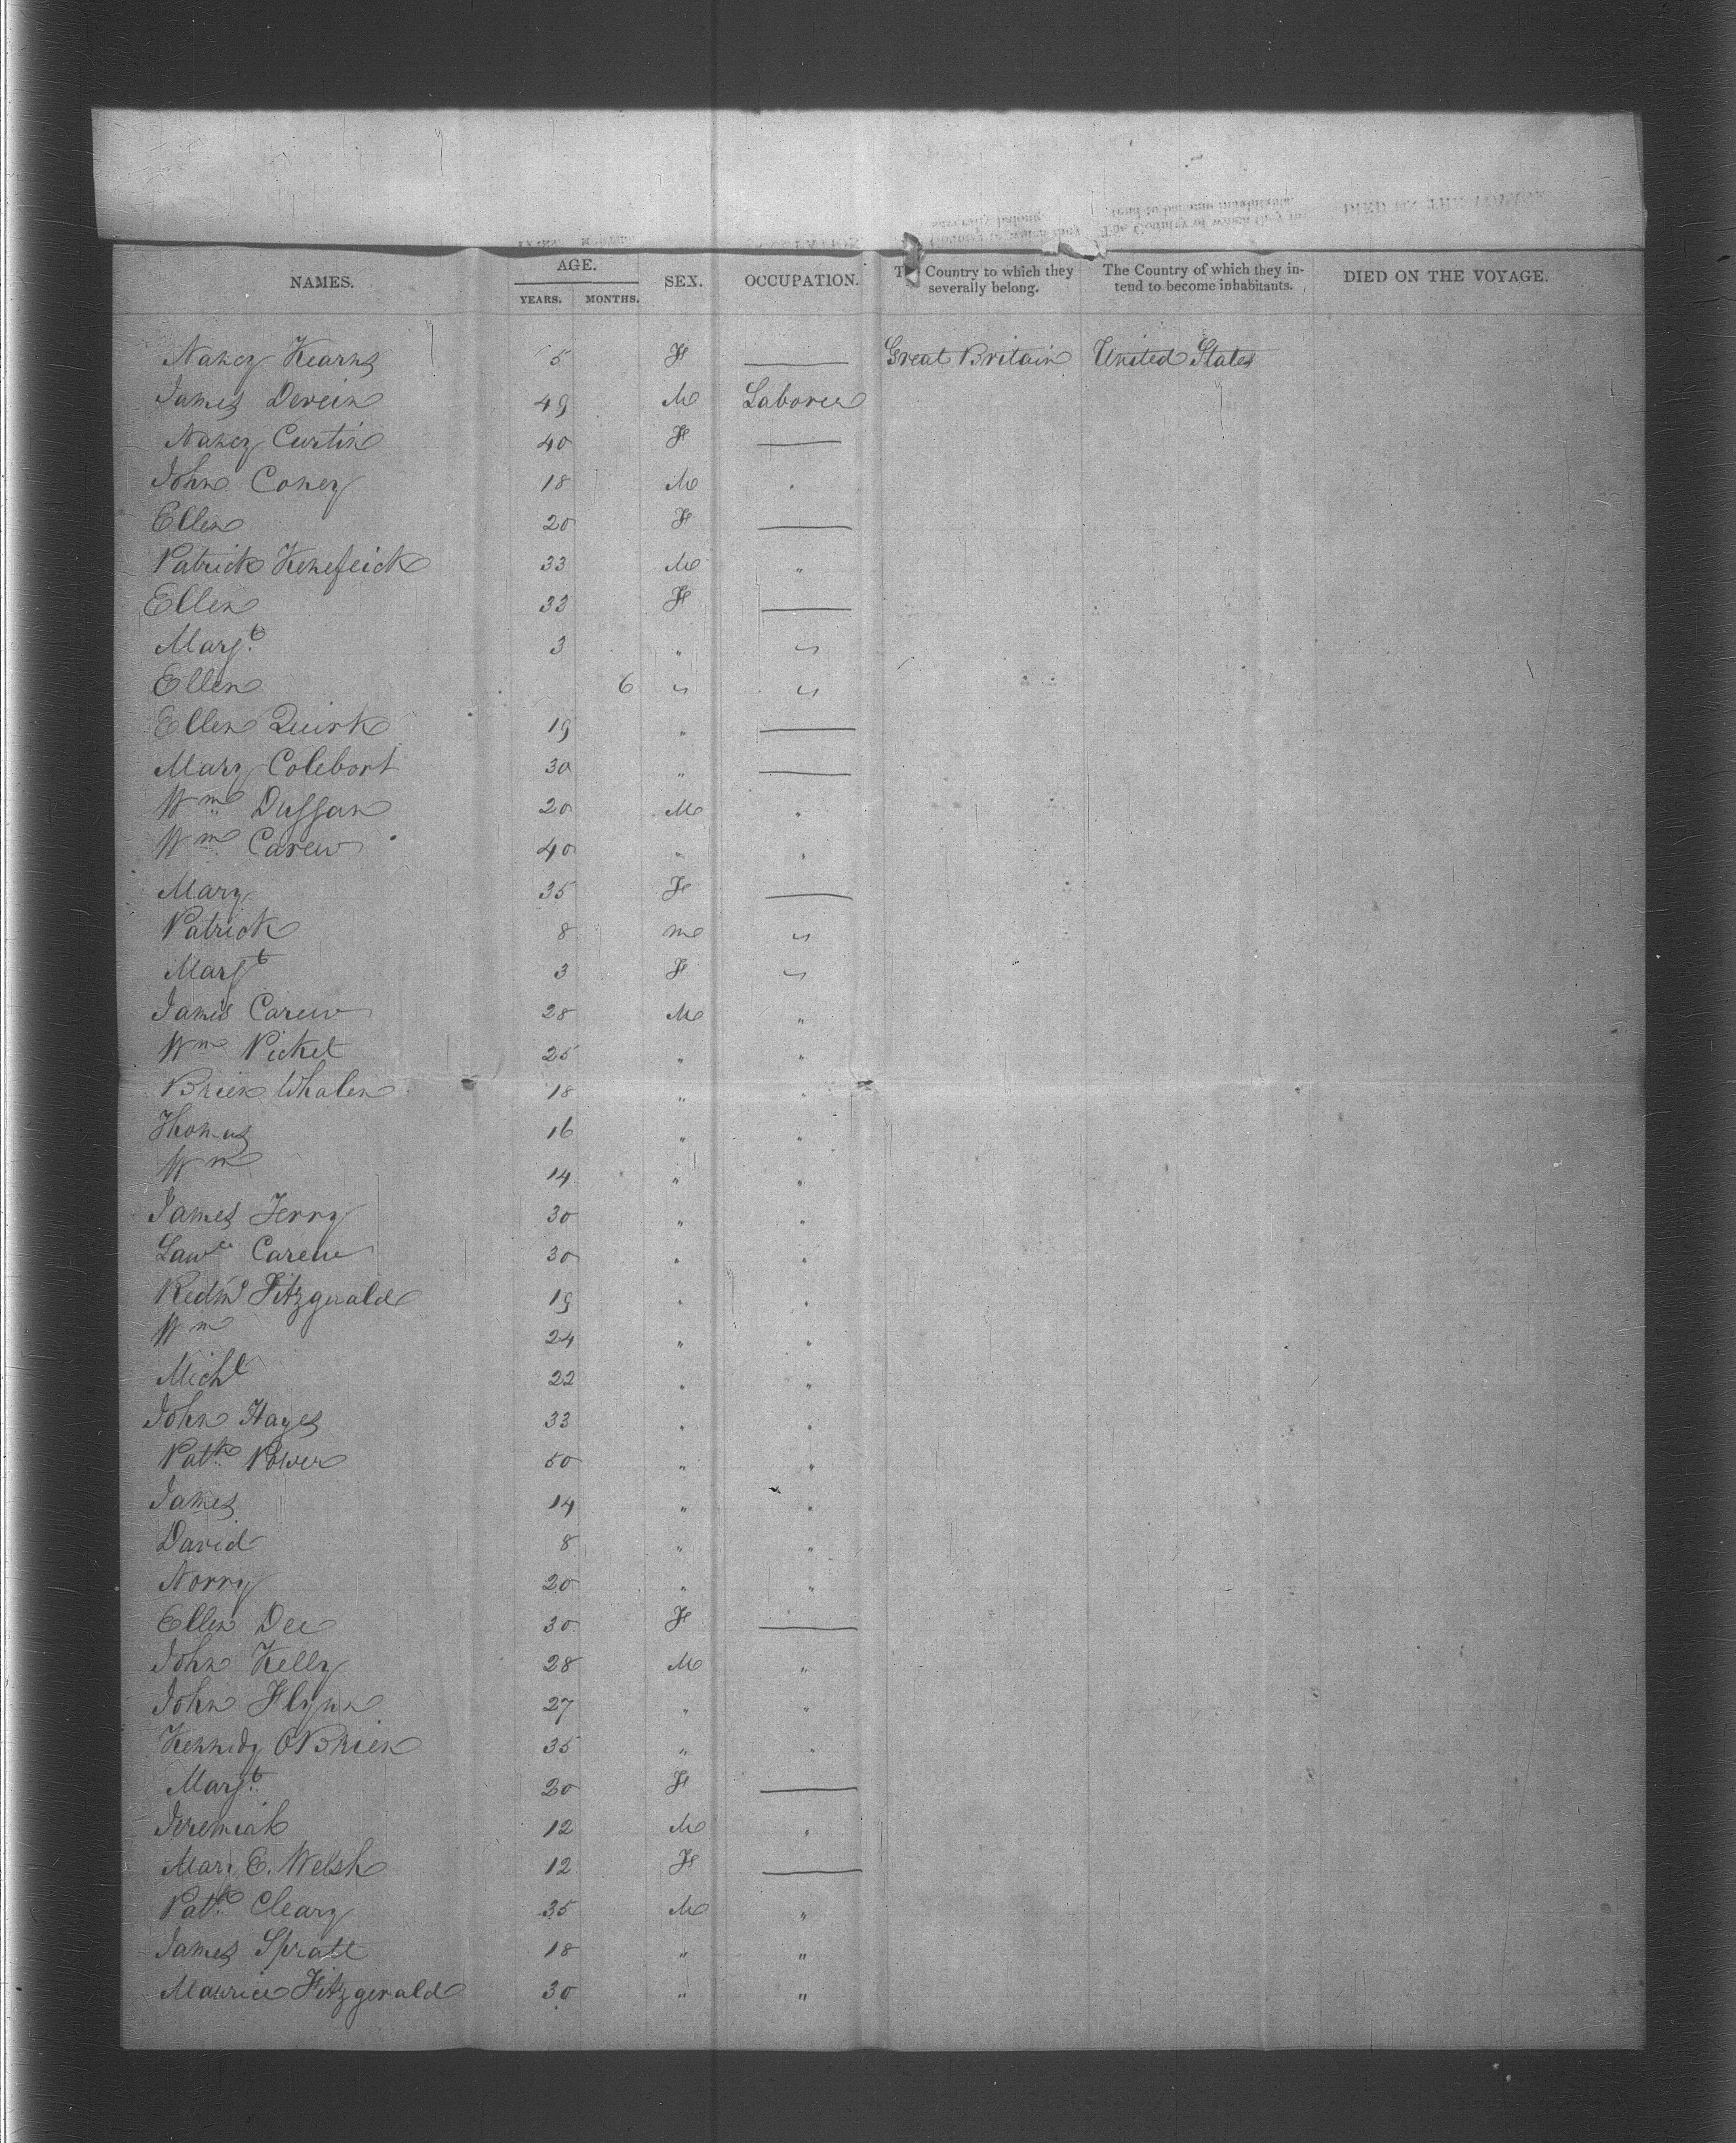 NAMES. AGE. YEARS. MONTHS. SEX. OCCUPATION. Country to which they severally belong. The Country of which they intend to become inhabitants. DIED ON THE VOYAGE.
Nancy Kearns 5 F — Great Britain United States
James Devein 49 M Laborer
Nancy Curtin 40 F —
John Coney 18 M "
Ellen 20 F —
Patrick Kenefick 33 M "
Ellen 33 F —
Margt. 3 " "
Ellen 6 " "
Ellen Quirk 19 " —
Mary Colebort 30 " —
Wm Duggan 20 M "
Wm Carew 40 " "
Mary 35 F —
Patrick 8 m "
Margt 3 F "
James Carew 28 M "
Wm Picket 25 " "
Brien Whalen 18 " "
Thomas 16 " "
Wm 14 " "
James Terry 30 " "
Lawce Carew 30 " "
Redmd Fitzgerald 19 " "
Wm 24 " "
Michl 22 " "
John Hayes 33 " "
Patk Power 50 " "
James 14 " "
David 8 " "
Norry 20 " "
Ellen Dee 30 F —
John Kelly 28 M "
John Flynn 27 " "
Kennedy OBrien 35 " "
Margt. 20 F —
Jeremiah 12 M "
Mary E. Welsh 12 F —
Patk Cleary 35 M "
James Spratt 18 " "
Maurice Fitzgerald 30 " "